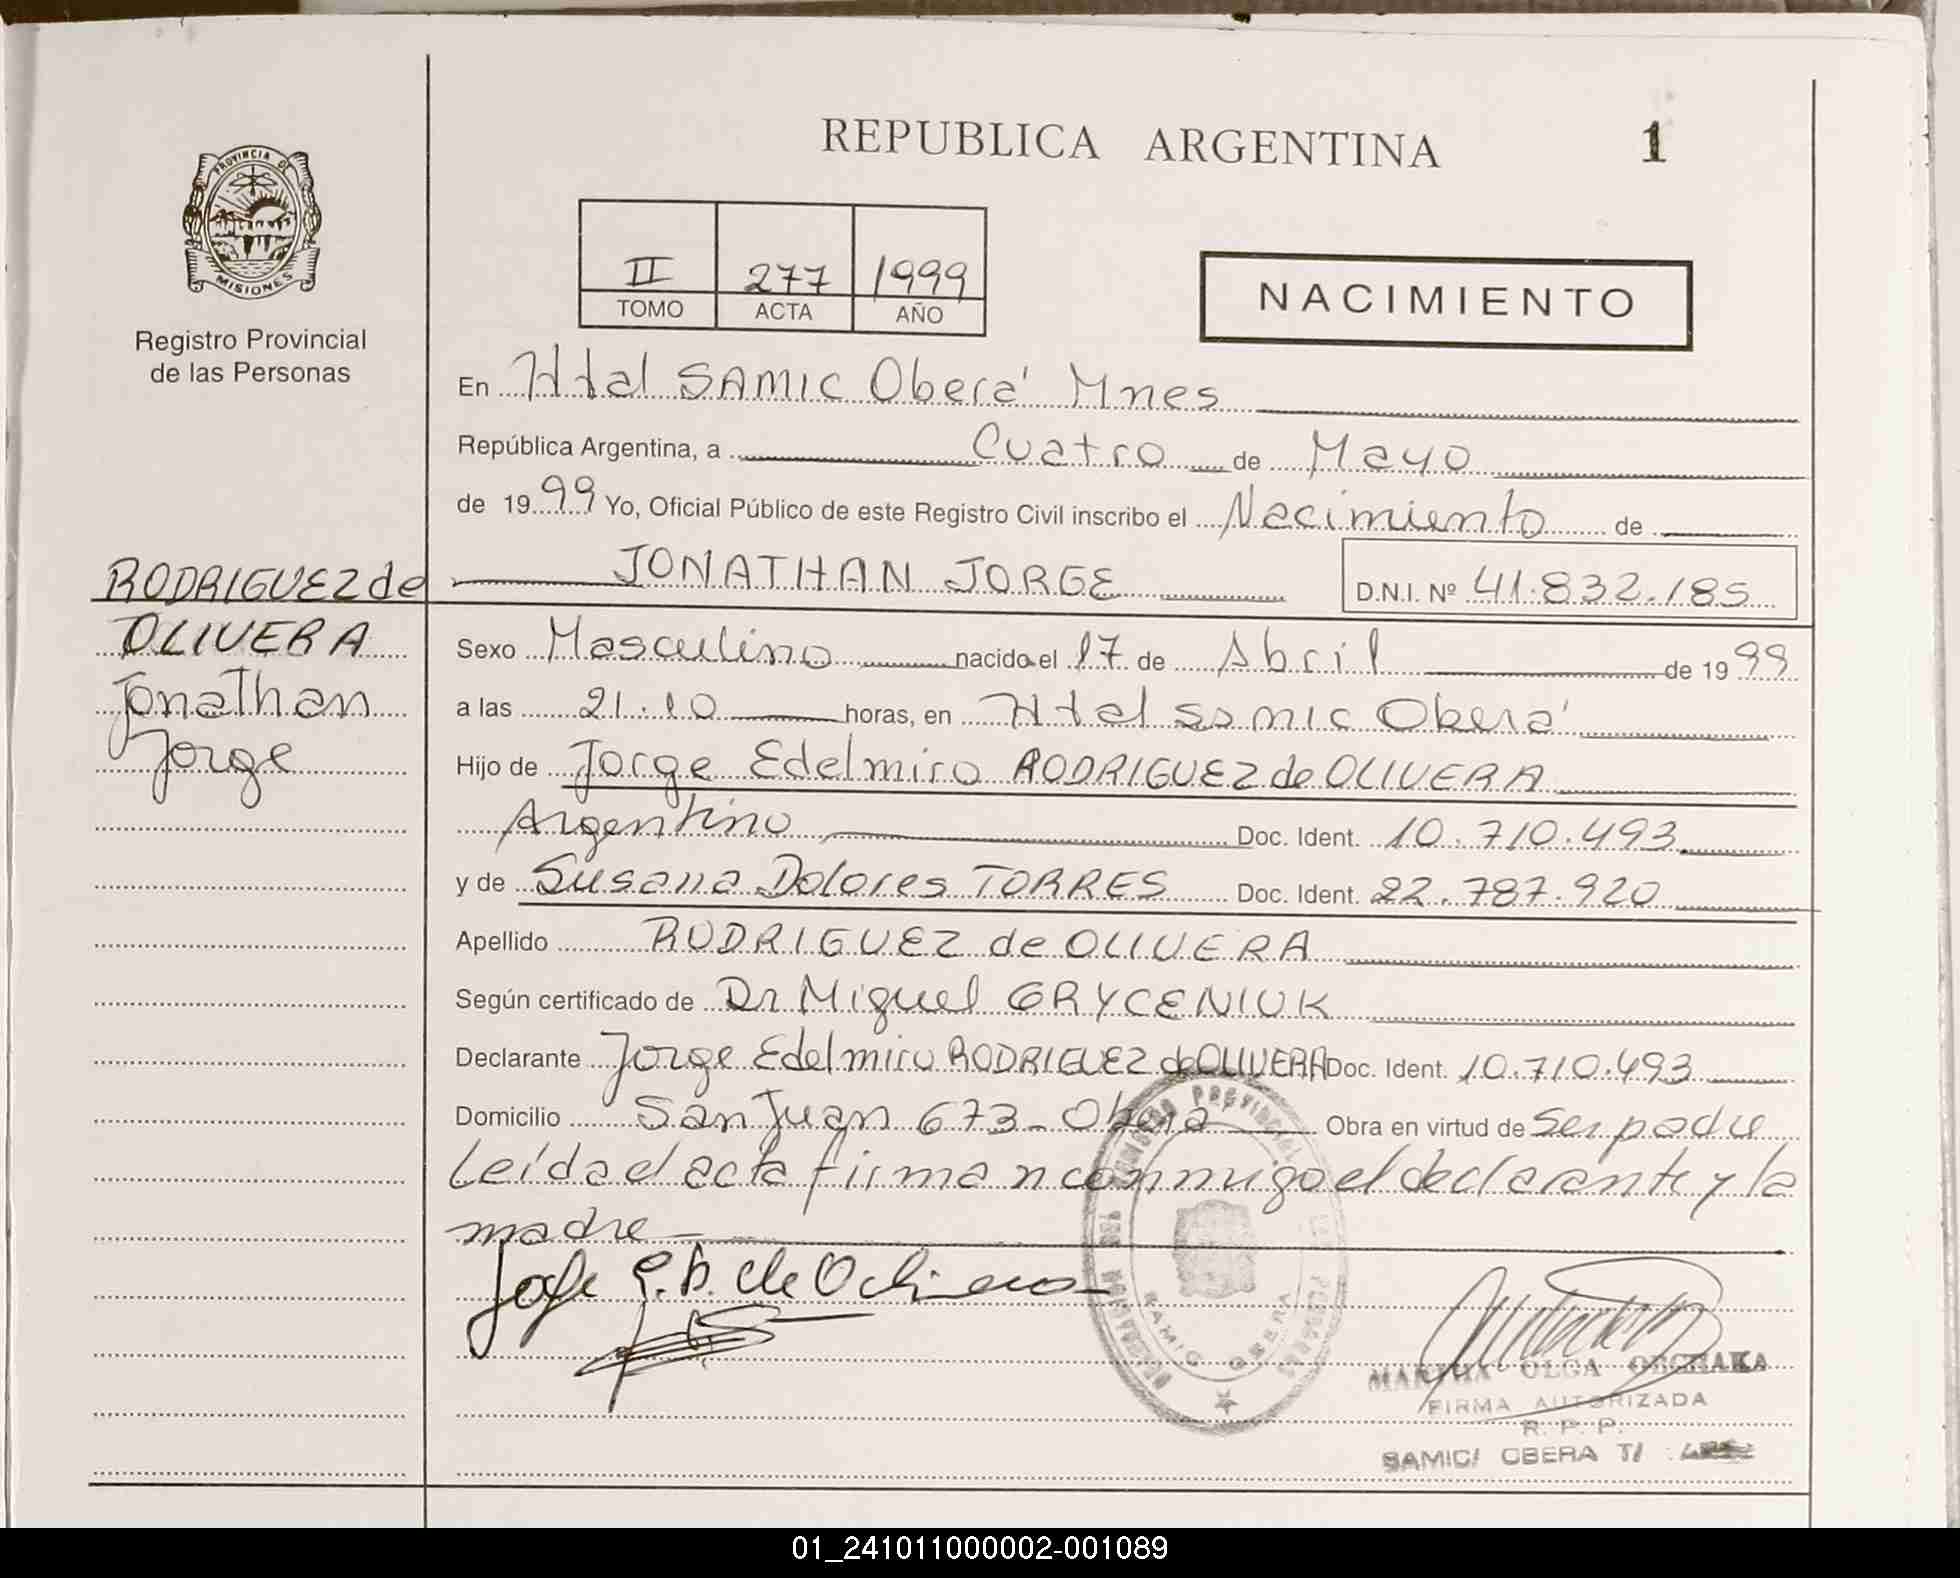 REPUBLICA ARGENTINA
1
PROVINCIA DE
MISIONES
Registro Provincial
de las Personas
II 277 1999
TOMO ACTA AÑO
NACIMIENTO
En Htal SAMIC Oberá Mnes
República Argentina, a Cuatro de Mayo
de 1999 Yo, Oficial Público de este Registro Civil inscribo el Nacimiento de
JONATHAN JORGE D.N.I. Nº 41.832.185
RODRIGUEZ de
OLIVERA
Jonathan
Jorge
Sexo Masculino nacido el 17 de Abril de 1999
a las 21.10 horas, en Htal Samic Oberá
Hijo de Jorge Edelmiro RODRIGUEZ de OLIVERA
Argentino Doc. Ident. 10.710.493
y de Susana Dolores TORRES Doc. Ident. 22.787.920
Apellido RODRIGUEZ de OLIVERA
Según certificado de Dr Miguel GRYCENIUK
Declarante Jorge Edelmiro RODRIGUEZ de OLIVERA Doc. Ident. 10.710.493
Domicilio San Juan 673 - Oberá Obra en virtud de ser padre
Leída el acta firman conmigo el declarante y la
madre
REGISTRO PROVINCIAL DE LAS PERSONAS
SAMIC OBERA
MARTHA OLGA
FIRMA AUTORIZADA
R. P. P.
SAMIC/ OBERA T/
01_241011000002-001089